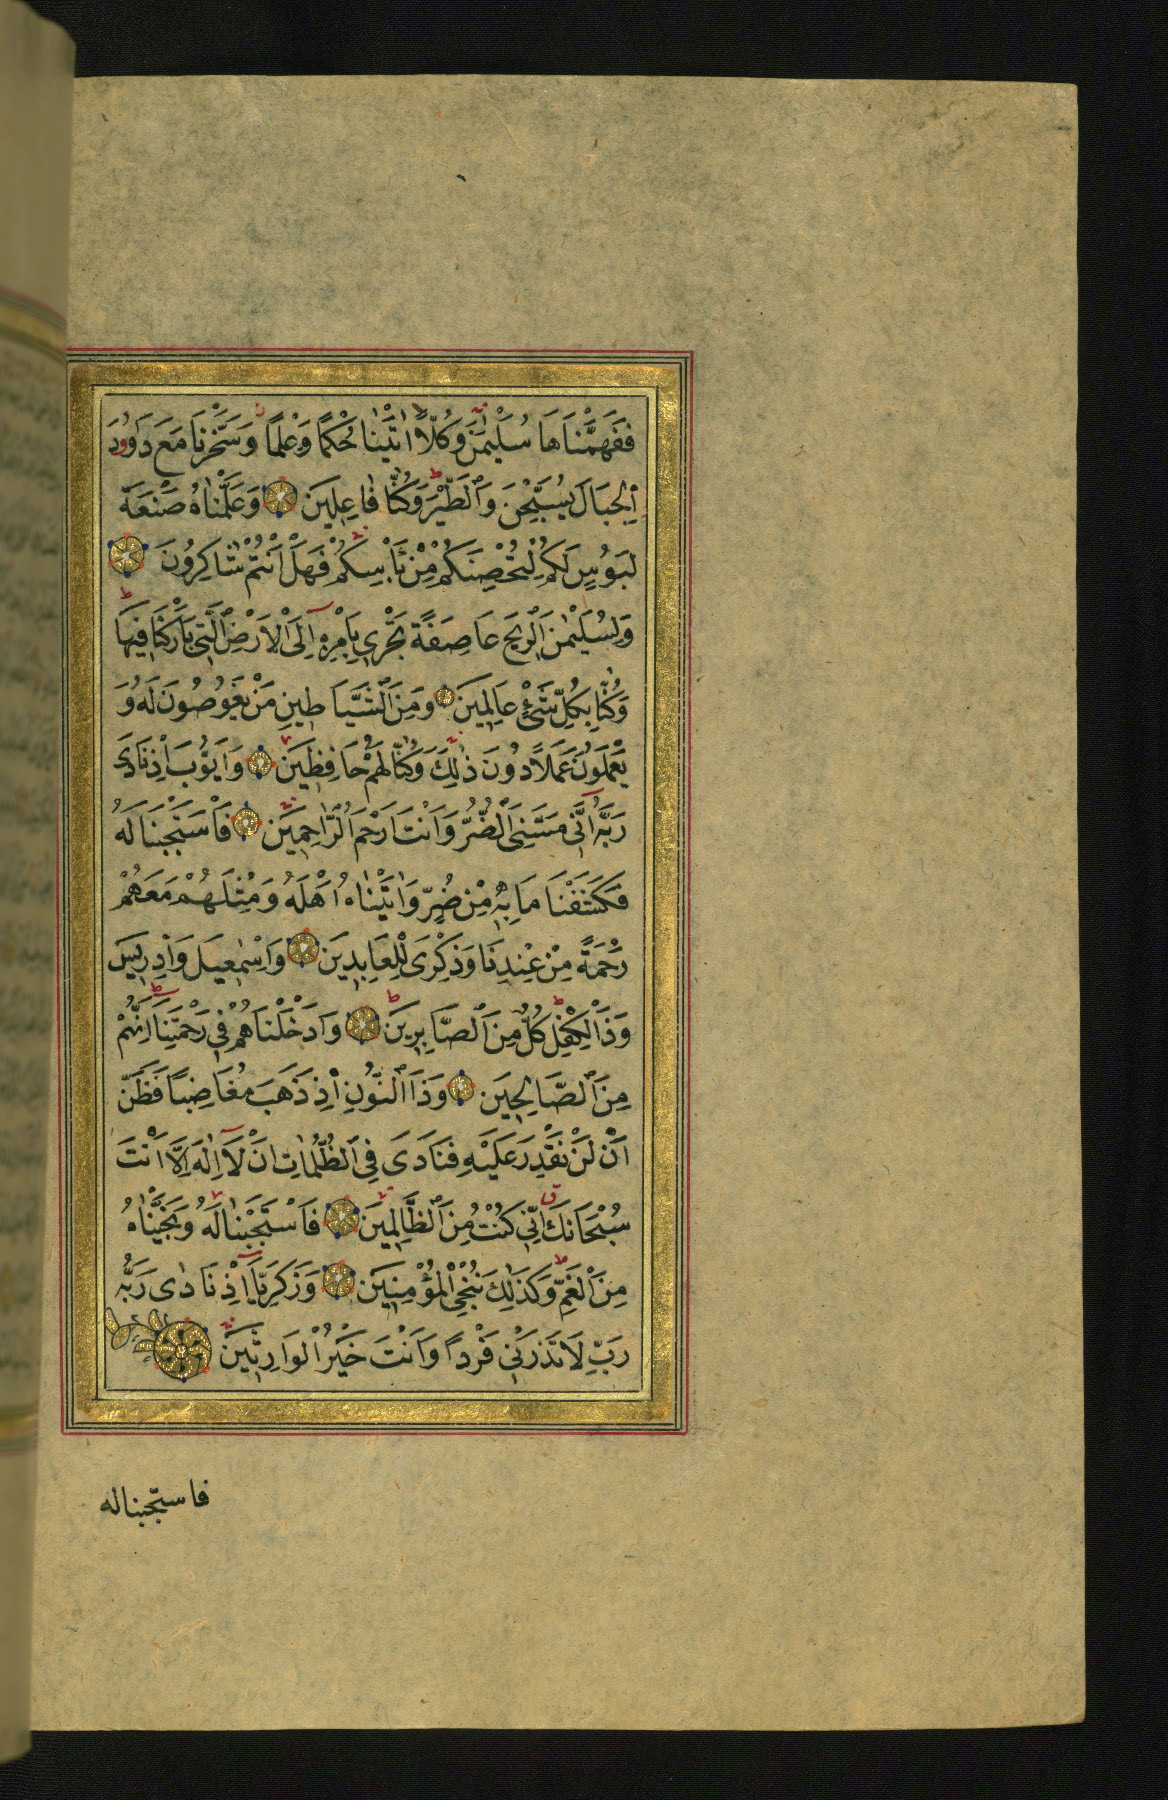 فَفَهَّمْنَاهَا سُلَيْمٰنَ وَكُلًّا اٰتَيْنَا حُكْمًا وَعِلْمًا وَسَخَّرْنَا مَعَ دَاوُودَ
اَلْجِبَالَ يُسَبِّحْنَ وَالطَّيْرَ وَكُنَّا فَاعِلِينَ وَعَلَّمْنَاهُ صَنْعَةَ
لَبُوسٍ لَكُمْ لِتُحْصِنَكُمْ مِنْ بَأْسِكُمْ فَهَلْ اَنْتُمْ شَاكِرُونَ
وَلِسُلَيْمٰنَ الرِّيحَ عَاصِفَةً تَجْرِي بِاَمْرِهِ اِلَى الْاَرْضِ الَّتِي بَارَكْنَا فِيهَا
وَكُنَّا بِكُلِّ شَيْءٍ عَالِمِينَ وَمِنَ الشَّيَاطِينِ مَنْ يَغُوصُونَ لَهُ وَ
يَعْمَلُونَ عَمَلًا دُونَ ذٰلِكَ وَكُنَّا لَهُمْ حَافِظِينَ وَاَيُّوبَ اِذْ نَادَى
رَبَّهُ اَنِّي مَسَّنِيَ الضُّرُّ وَاَنْتَ اَرْحَمُ الرَّاحِمِينَ فَاسْتَجَبْنَا لَهُ
فَكَشَفْنَا مَا بِهِ مِنْ ضُرٍّ وَاٰتَيْنَاهُ اَهْلَهُ وَمِثْلَهُمْ مَعَهُمْ
رَحْمَةً مِنْ عِنْدِنَا وَذِكْرَى لِلْعَابِدِينَ وَاِسْمٰعِيلَ وَاِدْرِيسَ
وَذَا الْكِفْلِ كُلٌّ مِنَ الصَّابِرِينَ وَاَدْخَلْنَاهُمْ فِي رَحْمَتِنَا اِنَّهُمْ
مِنَ الصَّالِحِينَ وَذَا النُّونِ اِذْ ذَهَبَ مُغَاضِبًا فَظَنَّ
اَنْ لَنْ نَقْدِرَ عَلَيْهِ فَنَادَى فِي الظُّلُمَاتِ اَنْ لَا اِلٰهَ اِلَّا اَنْتَ
سُبْحَانَكَ اِنِّي كُنْتُ مِنَ الظَّالِمِينَ فَاسْتَجَبْنَا لَهُ وَنَجَّيْنَاهُ
مِنَ الْغَمِّ وَكَذٰلِكَ نُنْجِي الْمُؤْمِنِينَ وَزَكَرِيَّا اِذْ نَادٰى رَبَّهُ
رَبِّ لَا تَذَرْنِي فَرْدًا وَاَنْتَ خَيْرُ الْوَارِثِينَ
فاستجبنا له